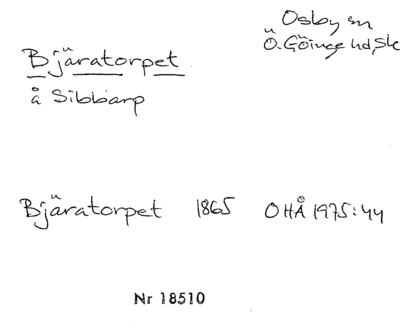 Osby sn
Ö. Göinge hd, Sk
Bjäratorpet
å Sibbarp
Bjäratorpet 1865 OHÅ 1975:44
Nr 18510